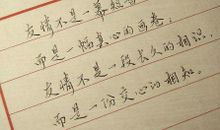 友情不是一幕短
而是一幅真心的画卷。
友情不是一段长久的相识，
而是一份交心的相知。